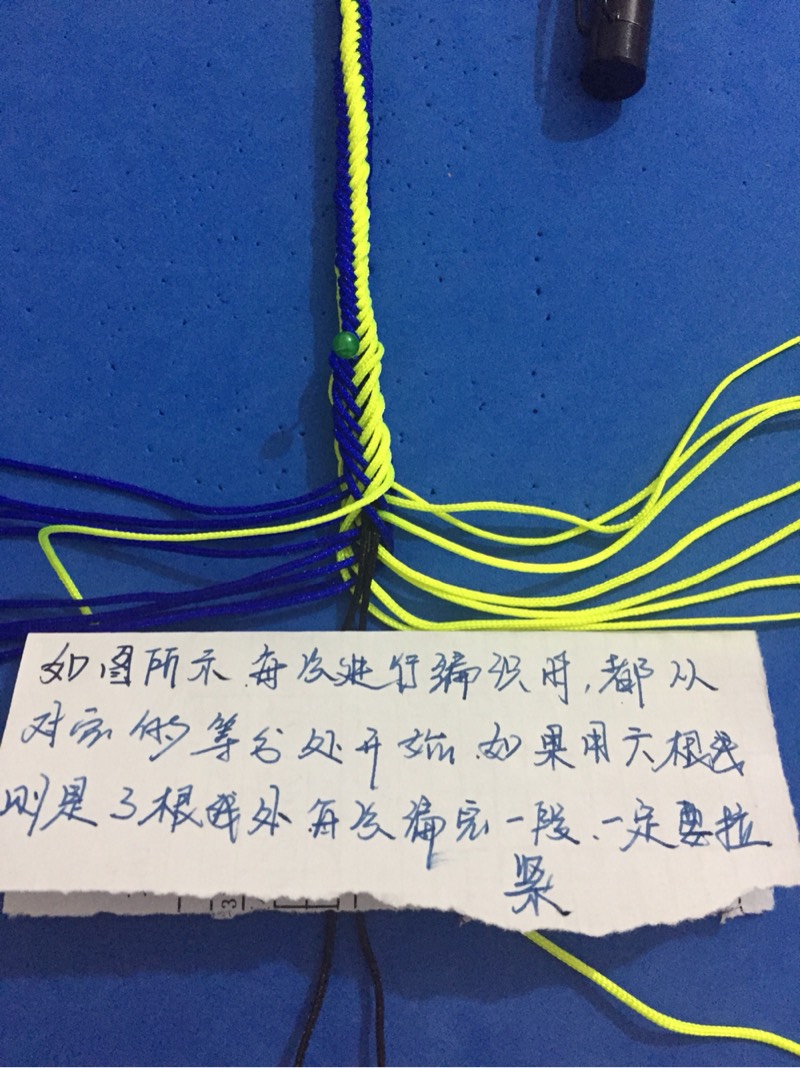 如图所示.每次进行编织时,都从
对家的等分处开始.如果用六根线
则是3根线处.每次编完一段.一定要拉
紧
3